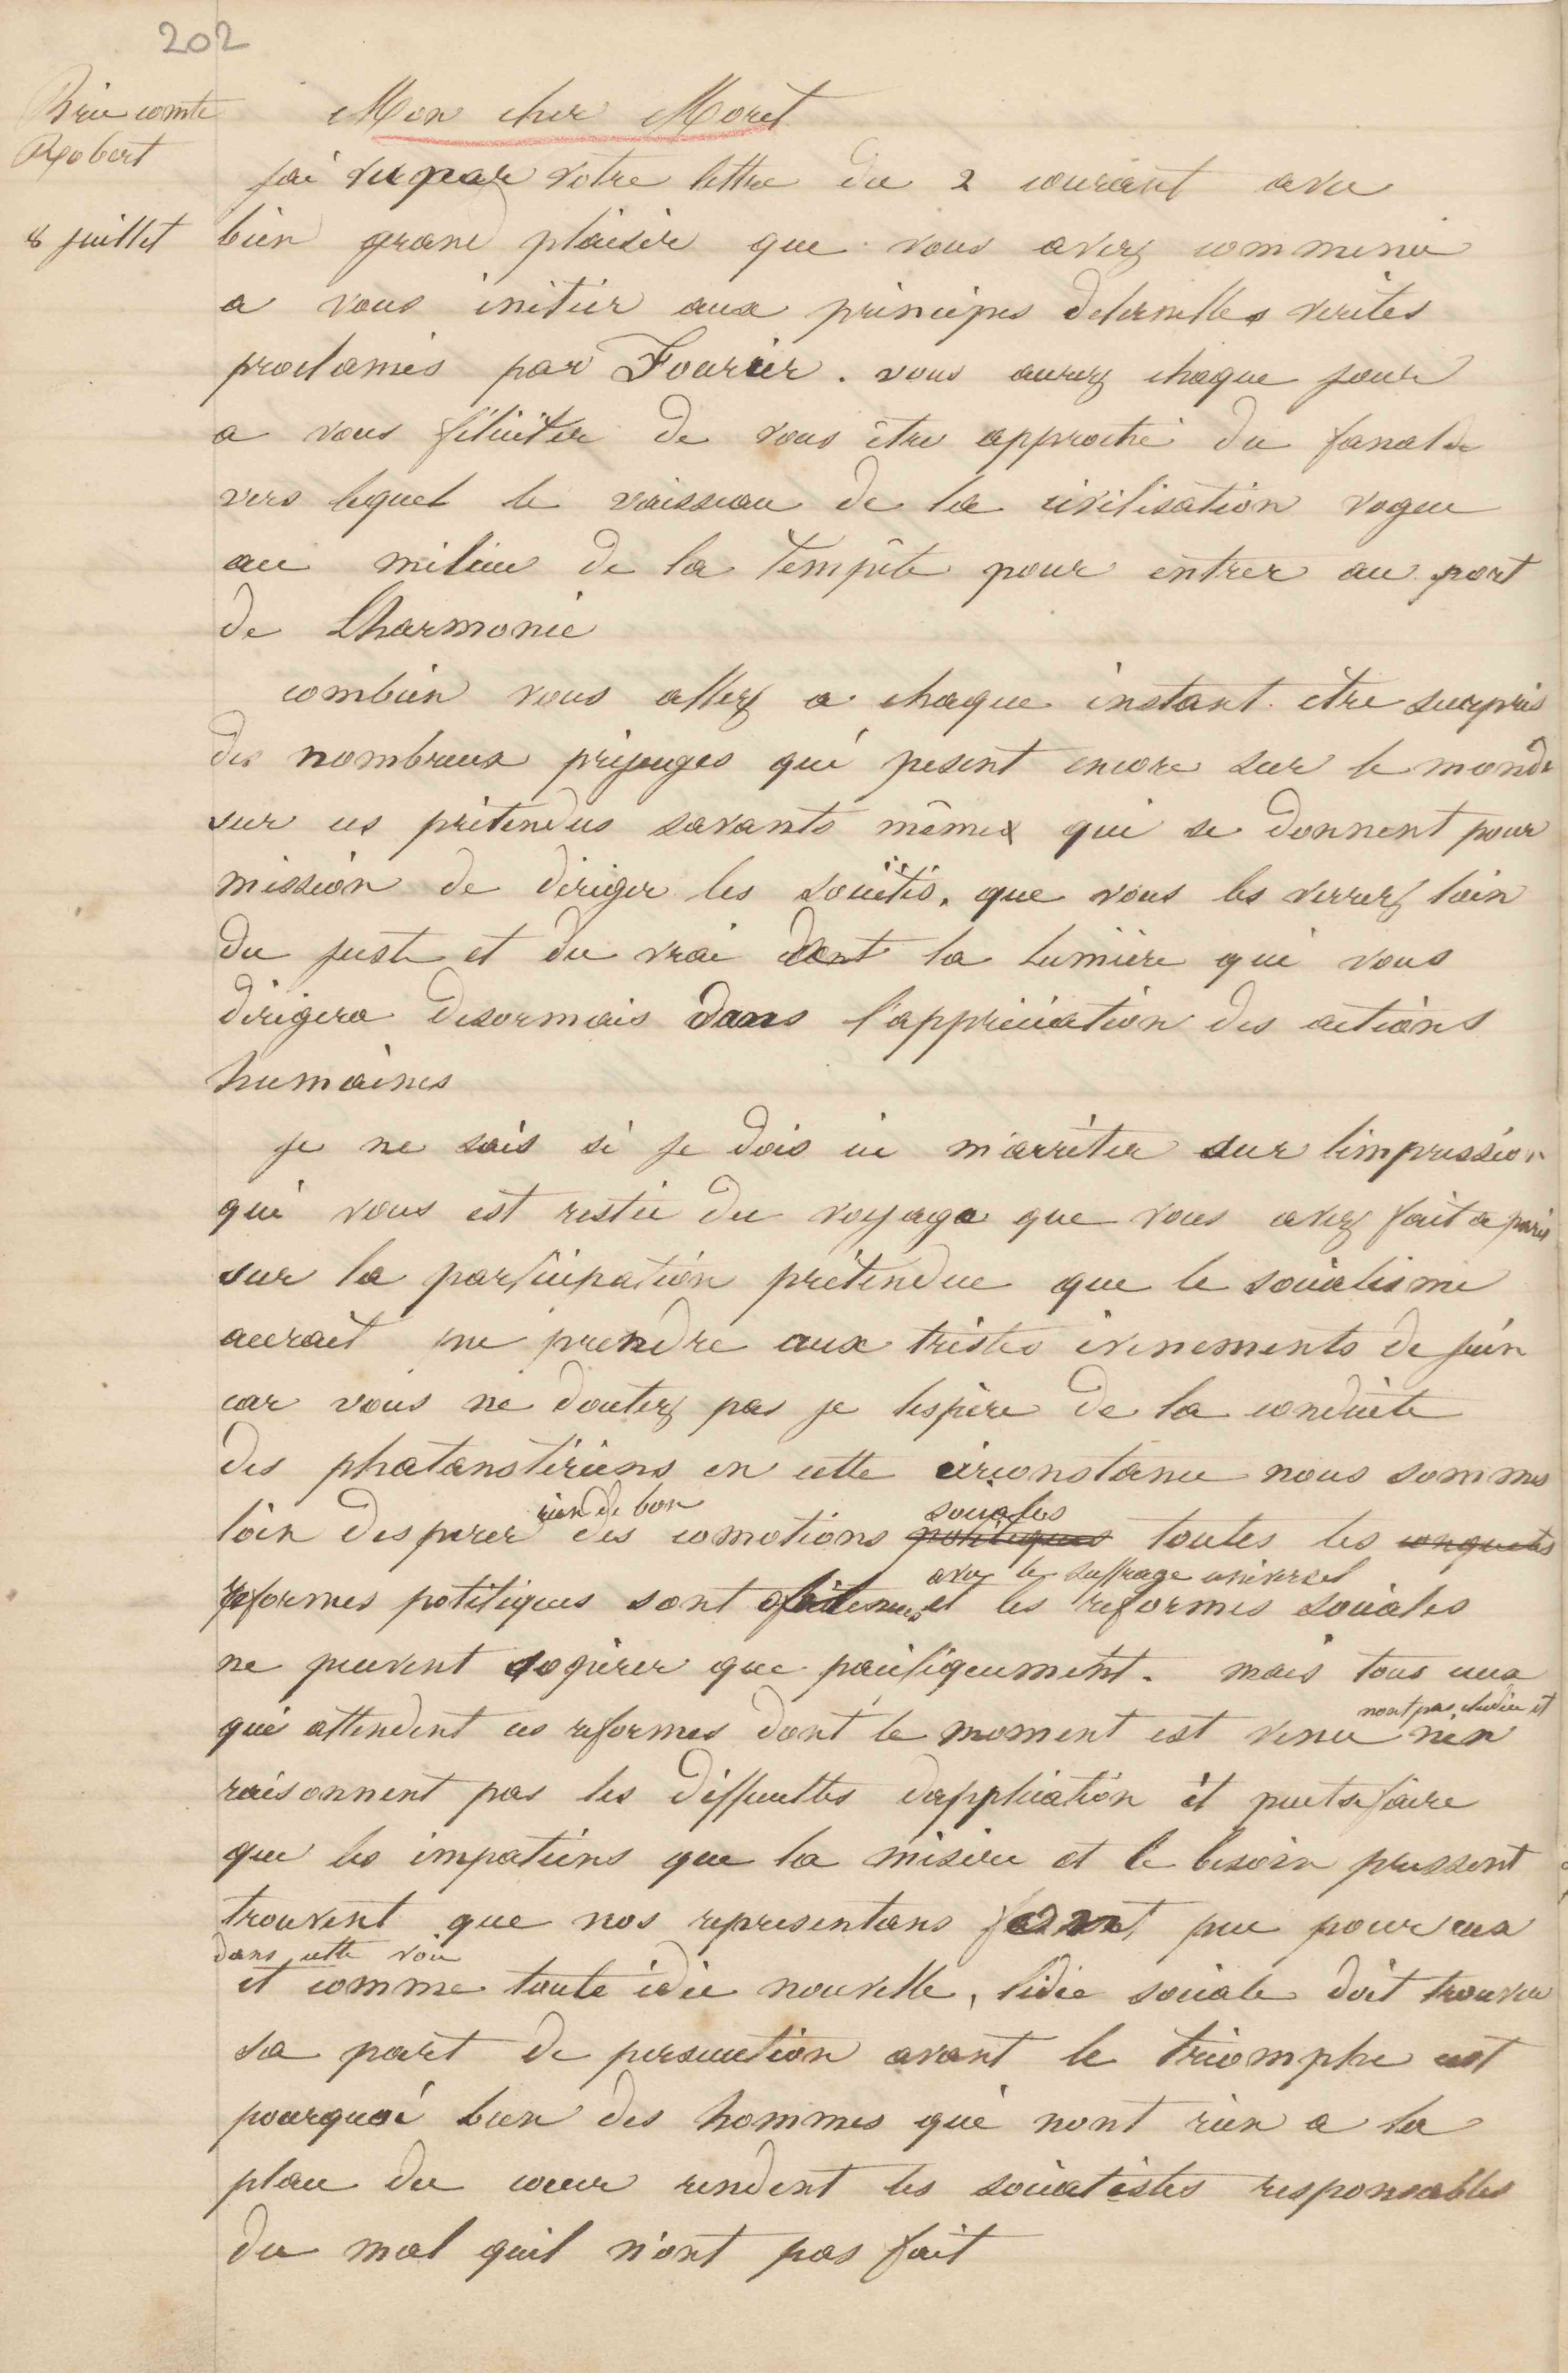 202
Brie comte
Robert
8 juillet
Mon cher Moret
jai vu par votre lettre du 2 courant avec
bien grand plaisir que vous avez commencé
a vous initier aux principes deternelles verites
proclamés par Fourier. vous aurez chaque jour
a vous féliciter de vous être approché du fanal
vers lequel le vaisseau de la civilisation vogue
au milieu de la tempête pour entrer au port
de Lharmonie
combien vous allez a chaque instant etre surpris
des nombreux prejuges qui pesent encore sur le monde
sur ces prétendus savants mêmes qui se donnent pour
mission de diriger les sociétés. que vous les verrez loin
du juste et du vrai dont la lumière qui vous
dirigera desormais dans l'appréciation des actions
humaines
je ne sais si je dois ici m'arrêter sur limpression
qui vous est restée du voyage que vous avez fait a paris
sur la participation prétendue que le socialisme
aurait pu prendre aux tristes évenements de juin
car vous ne doutez pas je lespère de la conduite
des phalanstériens en cette circonstance nous sommes
loin desperer rien de bon des comotions politiques sociales toutes les conquetes
reformes politiques sont obtenues avec le suffrage universel et les reformes sociales
ne peuvent sopérer que pacifiquement. mais tous ceux
qui attendent ces reformes dont le moment est venu nont pas étudié et nen
raisonnent pas les difficultés dapplication il peut se faire
que les impatiens que la misère et le besoin pressent
trouvent que nos representans font peu pour eux
dans cette voie
et comme toute idée nouvelle, lidée sociale doit trouver
sa part de persecution avant le triomphe cest
pourquoi bien des hommes qui nont rien a la
place du cœur rendent les socialistes responsables
du mal quil n'ont pas fait